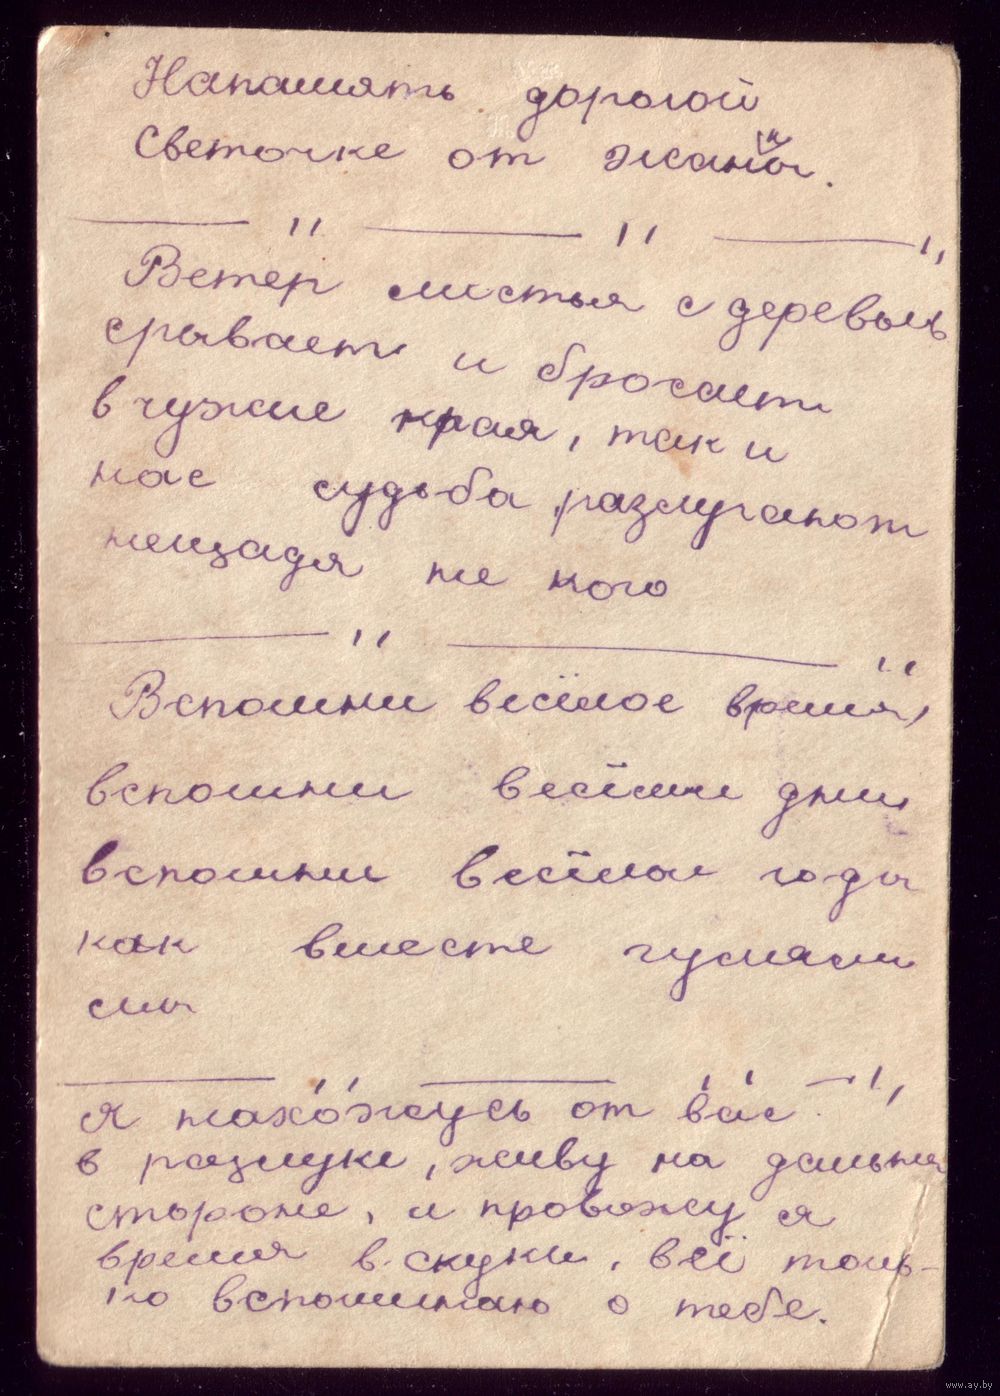 Напамять дорогой
Светочке от Жанны.
Ветер листья с деревьев
срывает и бросает
в чужие края, так и
нас судьба разлучают
нещадя не кого
Вспомни весёлое время,
вспомни весёлые дни
вспомни весёлые годы
как вместе гуляли
мы
Я нахожусь от вас
в разлуки, живу на дальней
стороне, и провожу я
время в скуки, всё толь-
ко вспоминаю о тебе.
www.ay.by